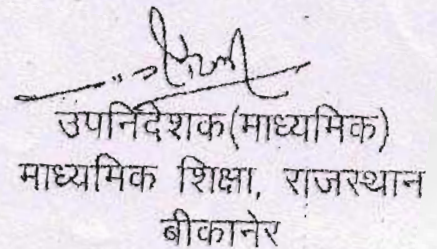 उपनिदेशक(माध्यमिक)
माध्यमिक शिक्षा, राजस्थान
बीकानेर